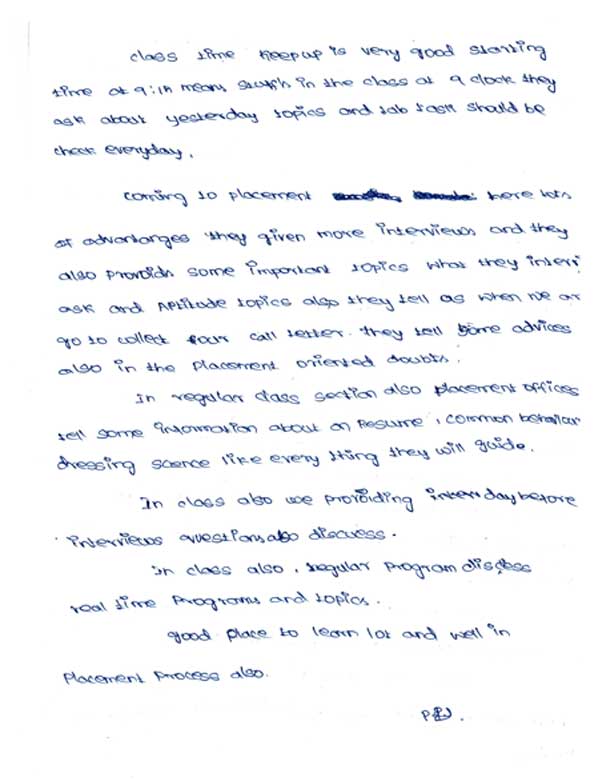 class time keepup is very good starting
time at 9:in means switch in the class at 9 clock they
ask about yesterday topics and lab task should be
check everyday.
coming to placement here lots
of advantanges they given more interviews and they
also provoids some important topics what they interv
ask and Aptitude topics also they tell as when we ar
go to collect four call letter. they tell some advices
also in the placement oriented doubts.
In regular class section also placement offices
tell some information about on Resume, common behaviar
dressing scence like every thing they will guide.
In class also we provoiding inter day before
interviews questions also discuess.
In class also, regular program discess
real time programs and topics.
good place to learn lot and well in
placement process also.